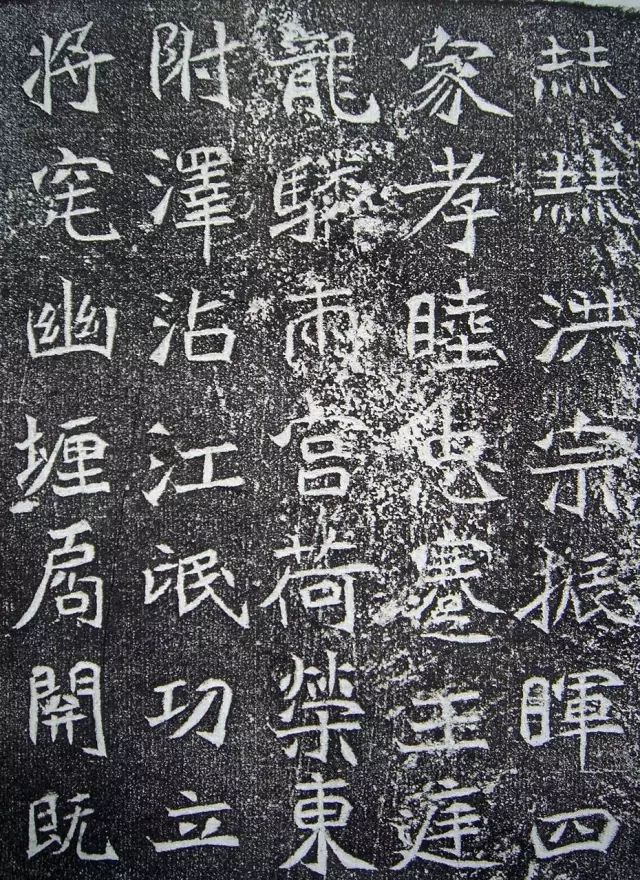 赫赫洪宗振暉四
家孝睦忠蹇王庭
龍驎兩宮荷榮東
附澤沾江氓功立
將窀幽壥扃開既